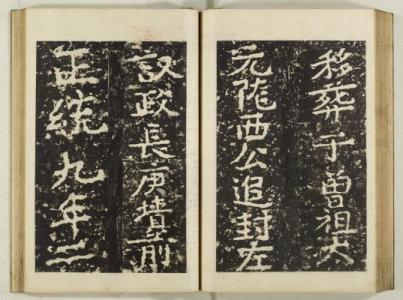 移葬于曾祖大
元陇西公追封左
议政長庚墳前
正統九年三